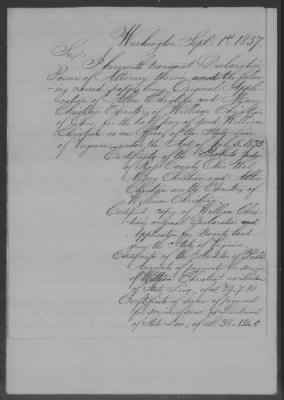 Washington Sept. 1st 1857
Sir,
I herewith transmit Declaration
Power of Attorney therein and the follow-
ing named papers being Original Appli-
cation of Allen Christian and
Christian Executors of William Christian
for the half pay of said William
Christian as an Officer of the State Line
of Virginia under the Act of July 5. 1832
Certificate of the Probate Judge
of County that
Christian and Allen
Christian are the Executors of
William Christian
Certified copy of William Chris-
tian's original Declaration and
Application for Bounty Land
from the State of Virginia
Certificate of the Auditor of Public
Accounts of payment for services
of William Christian
of State Line, of £ 39.7.11
Certificate of same of payment
for services of same as Lieutenant
of State Line, of £ 35.12.0